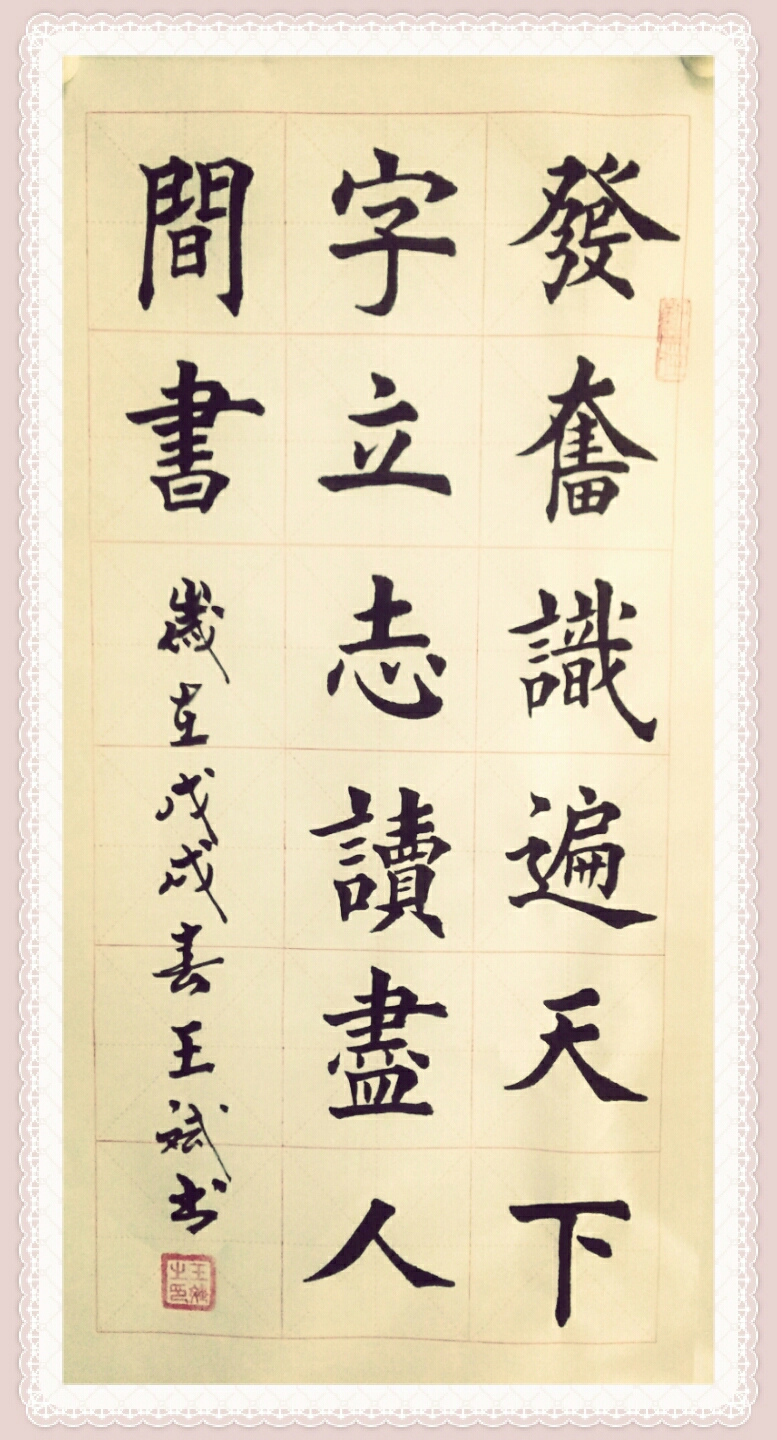 發奮識遍天下
字立志讀盡人
間書
歲在戊戌春王斌书
王斌之印